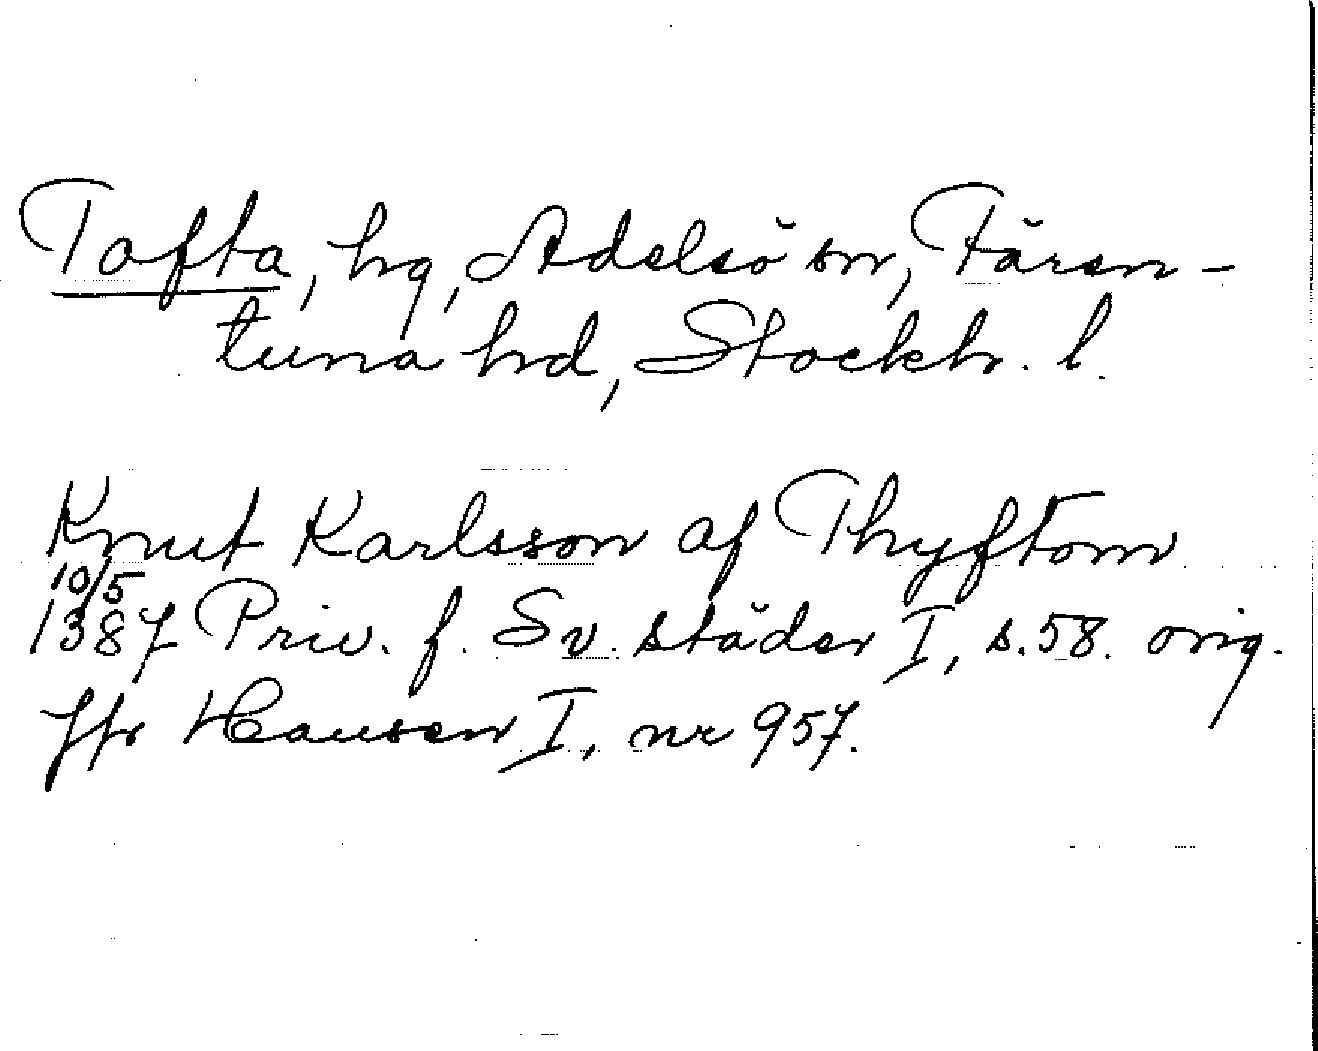 Tofta, hg, Adelsö sn, Fären-
tuna hd, Stockh. l.
Knut Karlsson af Thyftom
10/5
1387 Priv. f. Sv. städer I, s. 58. orig.
Jfr Hausen I, nr 957.